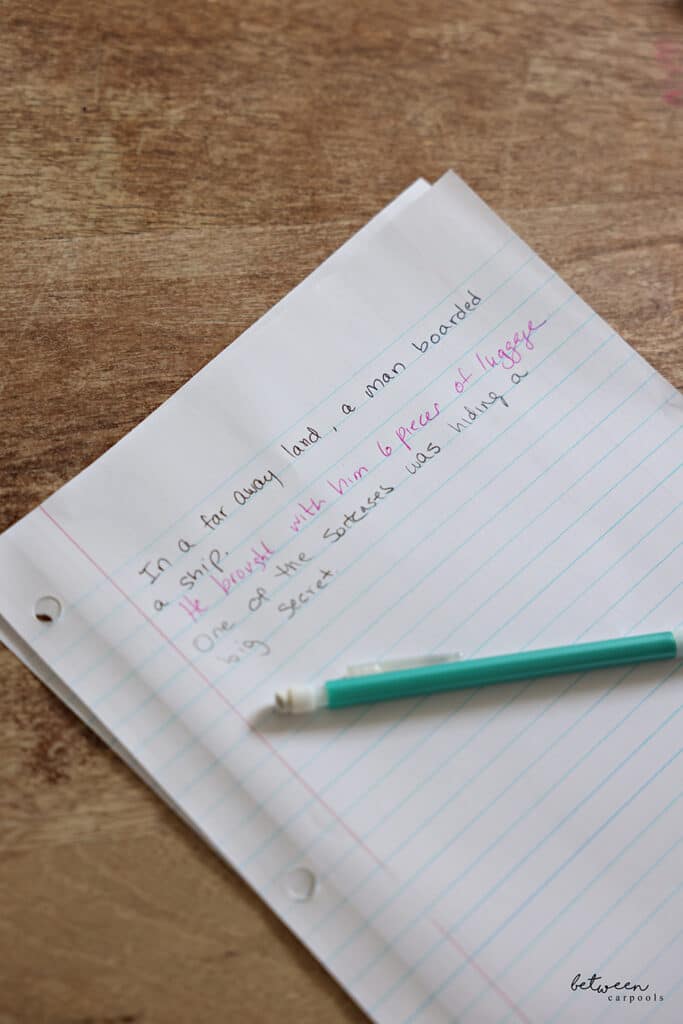 In a far away land, a man boarded
a ship.
He brought with him 6 pieces of luggage
One of the suitcases was hiding a
big secret.
between
carpools